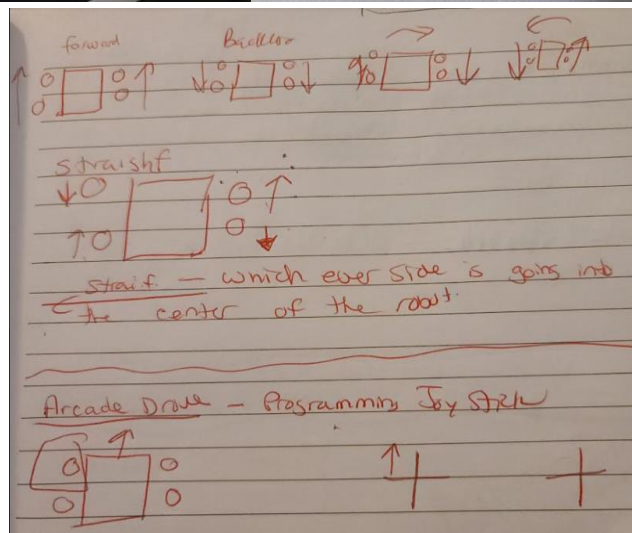 forward
straishf
strait — which ever side is going into
the center of the robot.
Arcade Drove - Programming Joy Stick